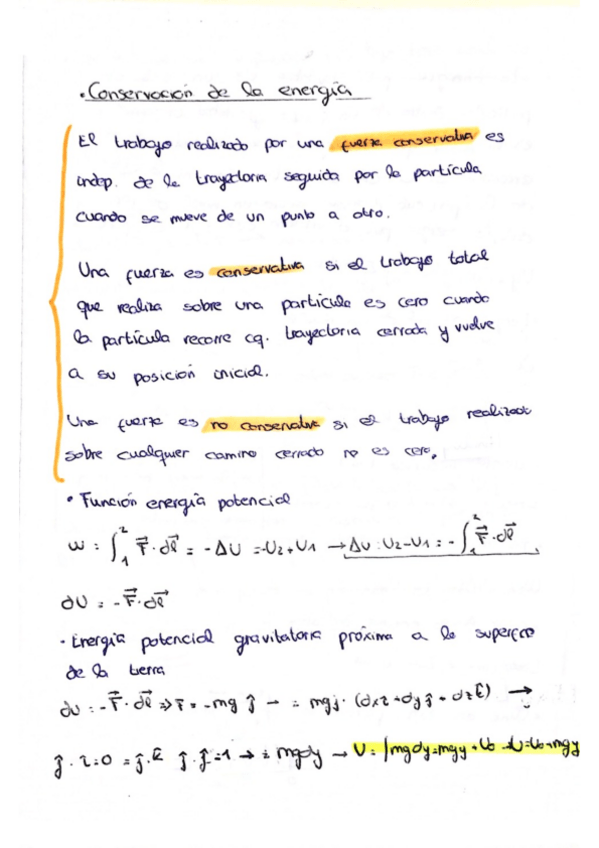 • Conservación de la energía
El trabajo realizado por una fuerza conservativa es
indep. de la trayectoria seguida por la partícula
cuando se mueve de un punto a otro.
Una fuerza es conservativa si el trabajo total
que realiza sobre una partícula es cero cuando
la partícula recorre cq. trayectoria cerrada y vuelve
a su posición inicial.
Una fuerza es no conservativa si el trabajo realizado
sobre cualquier camino cerrado no es cero.
• Función energía potencial
W = ∫₁² F⃗ · dl⃗ = -ΔU = -U₂ + U₁ → ΔU = U₂ - U₁ = - ∫₁² F⃗ · dl⃗
dU = - F⃗ · dl⃗
• Energía potencial gravitatoria próxima a la superficie
de la tierra
dU = - F⃗ · dl⃗ ⇒ F⃗ = -mg ĵ → = mg ĵ · (dx î + dy ĵ + dz k̂) →
ĵ · î = 0 = ĵ · k̂ ĵ · ĵ = 1 → = mgdy → U = ∫mgdy = mgy + U₀ → U = U₀ + mgy